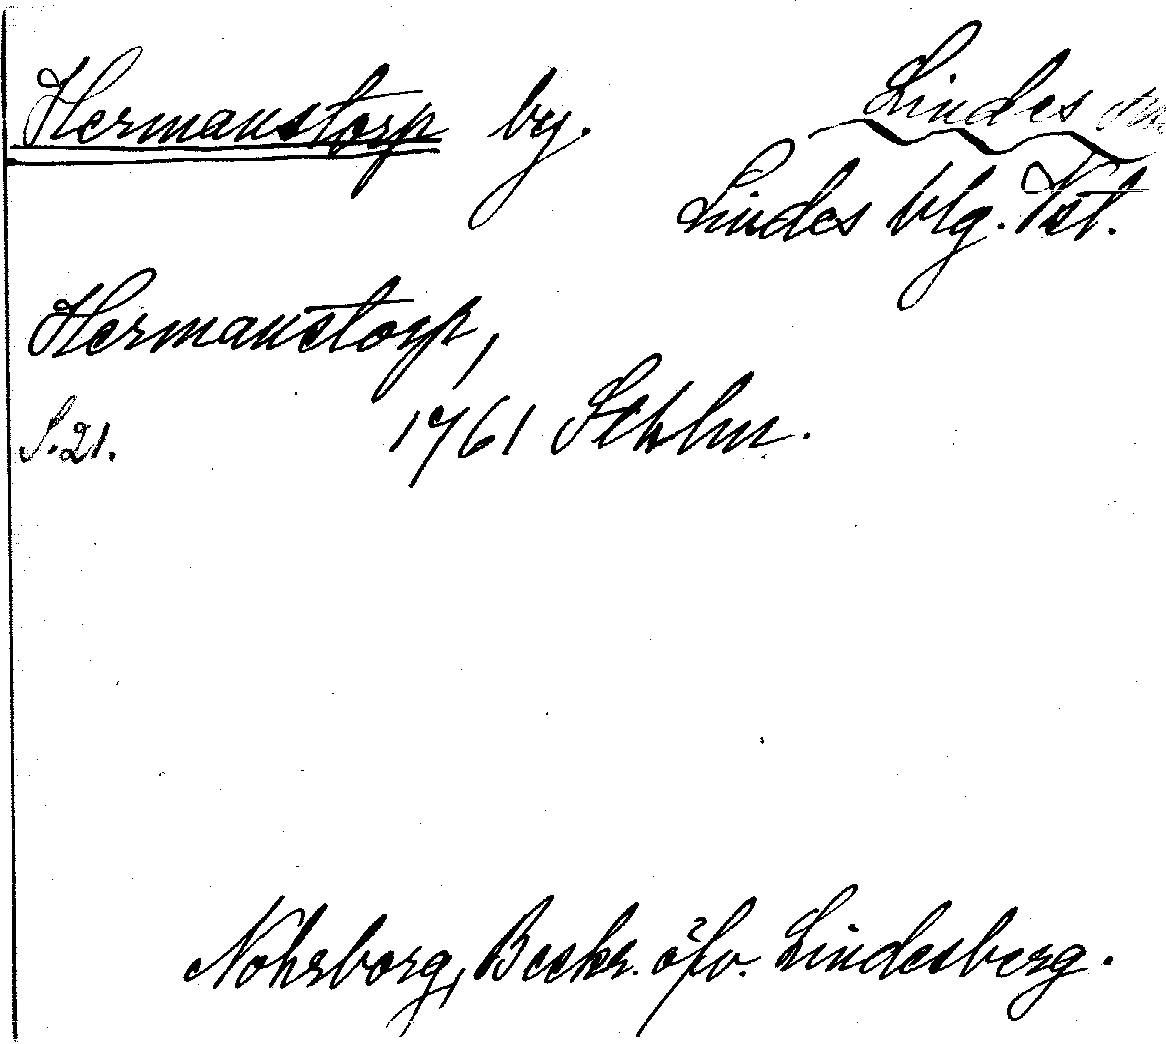 Hermanstorp by. Lindes sn
Lindes blg. Vst.
Hermanstorp,
S. 21. 1761 Sthlm.
Nohrborg, Beskr. öfv. Lindesberg.